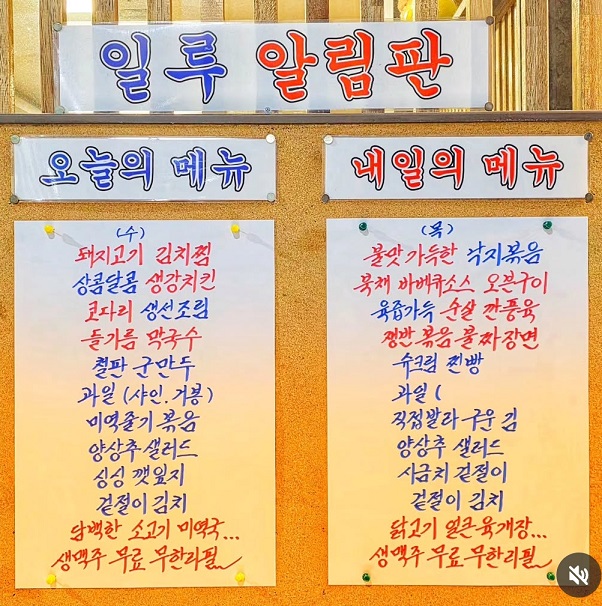 일루 알림판
오늘의 메뉴
(수)
돼지고기 김치찜
상콤달콤 생강치킨
코다리 생선조림
들기름 막국수
철판 군만두
과일 (샤인.거봉)
미역줄기 볶음
양상추 샐러드
싱싱 깻잎지
겉절이 김치
담백한 소고기 미역국...
생맥주 무료 무한리필~
내일의 메뉴
(목)
불맛 가득한 낙지볶음
훈제 바베큐소스 오븐구이
육즙가득 순살 깐풍육
쟁반 볶음 불짜장면
슈크림 찐빵
과일 (
직접발라 구운 김
양상추 샐러드
시금치 겉절이
겉절이 김치
닭고기 얼큰 육개장...
생맥주 무료 무한리필~